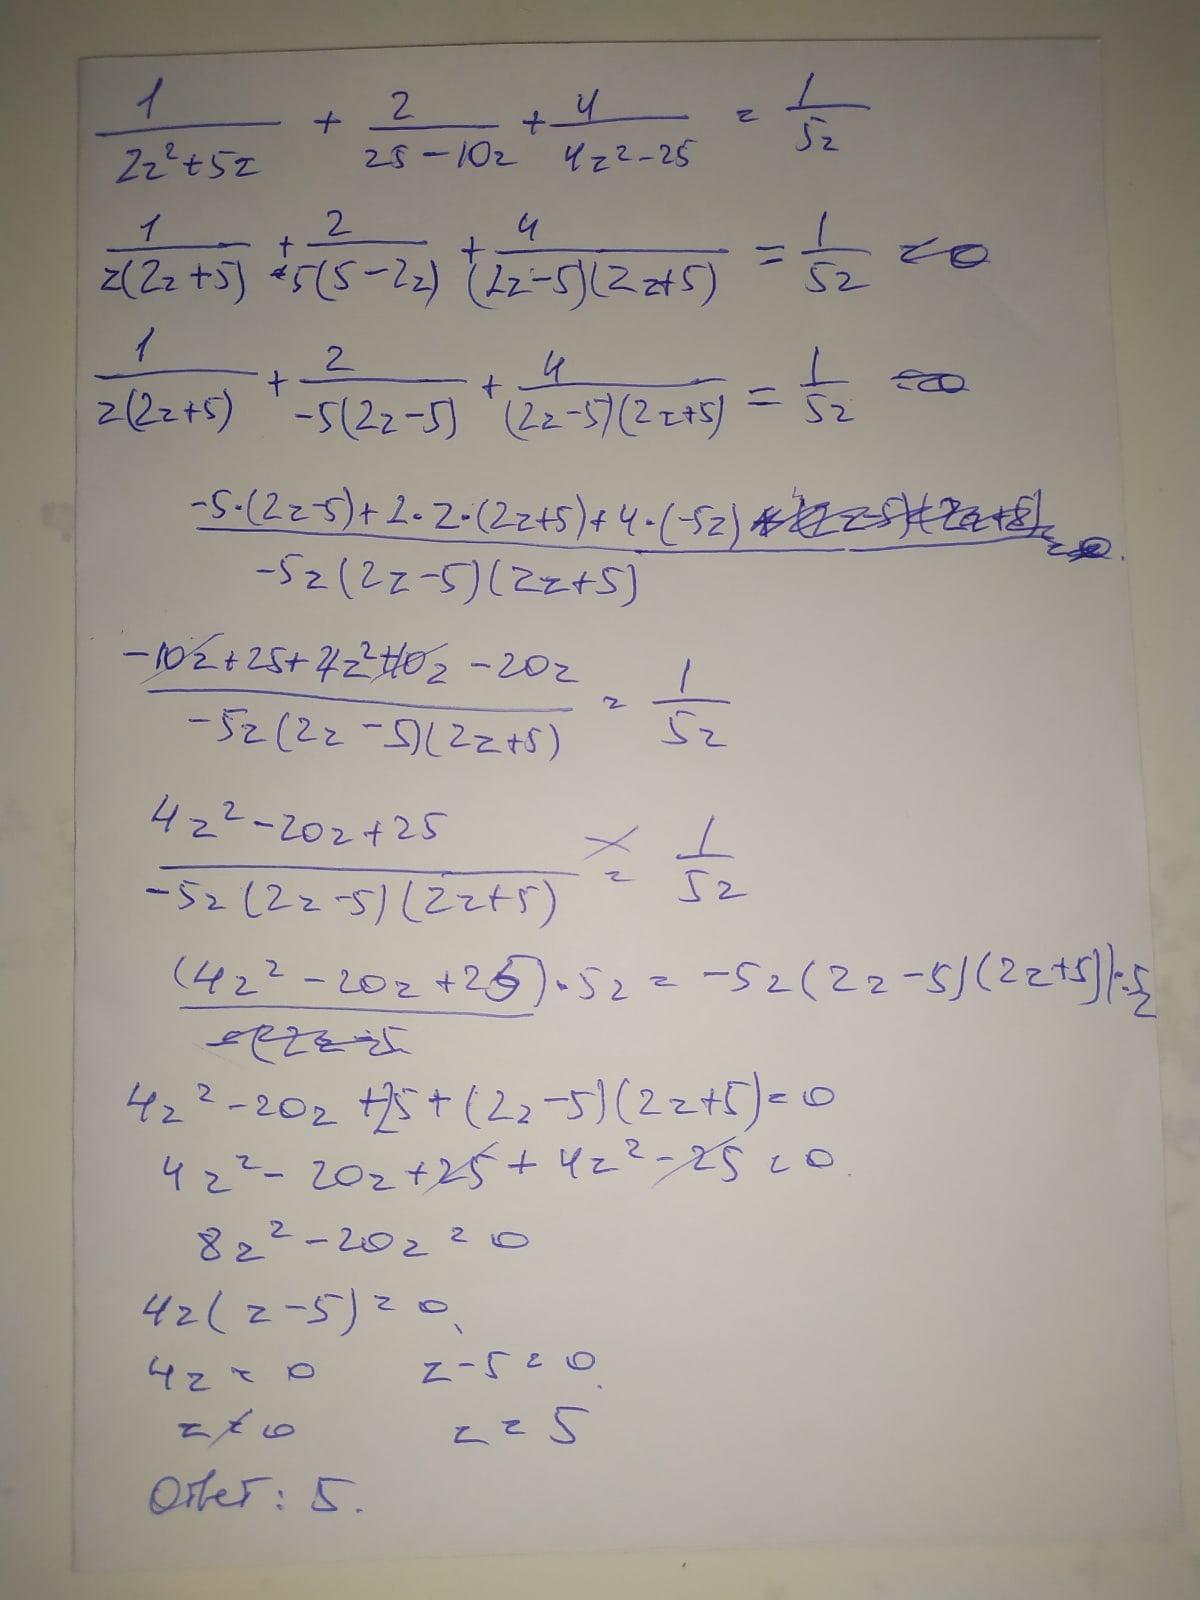 1/(2z²+5z) + 2/(25-10z) + 4/(4z²-25) = 1/5z
1/(z(2z+5)) + 2/(5(5-2z)) + 4/((2z-5)(2z+5)) = 1/5z
1/(z(2z+5)) + 2/(-5(2z-5)) + 4/((2z-5)(2z+5)) = 1/5z
(-5·(2z-5)+2·z·(2z+5)+4·(-5z))/(-5z(2z-5)(2z+5)) =
(-10z+25+4z²+10z-20z)/(-5z(2z-5)(2z+5)) = 1/5z
(4z²-20z+25)/(-5z(2z-5)(2z+5)) = 1/5z
(4z²-20z+25)·5z = -5z(2z-5)(2z+5) |:5z
4z²-20z+25+(2z-5)(2z+5)=0
4z²-20z+25+4z²-25=0
8z²-20z=0
4z(z-5)=0
4z=0 z-5=0
z≠0 z=5
Ответ: 5.